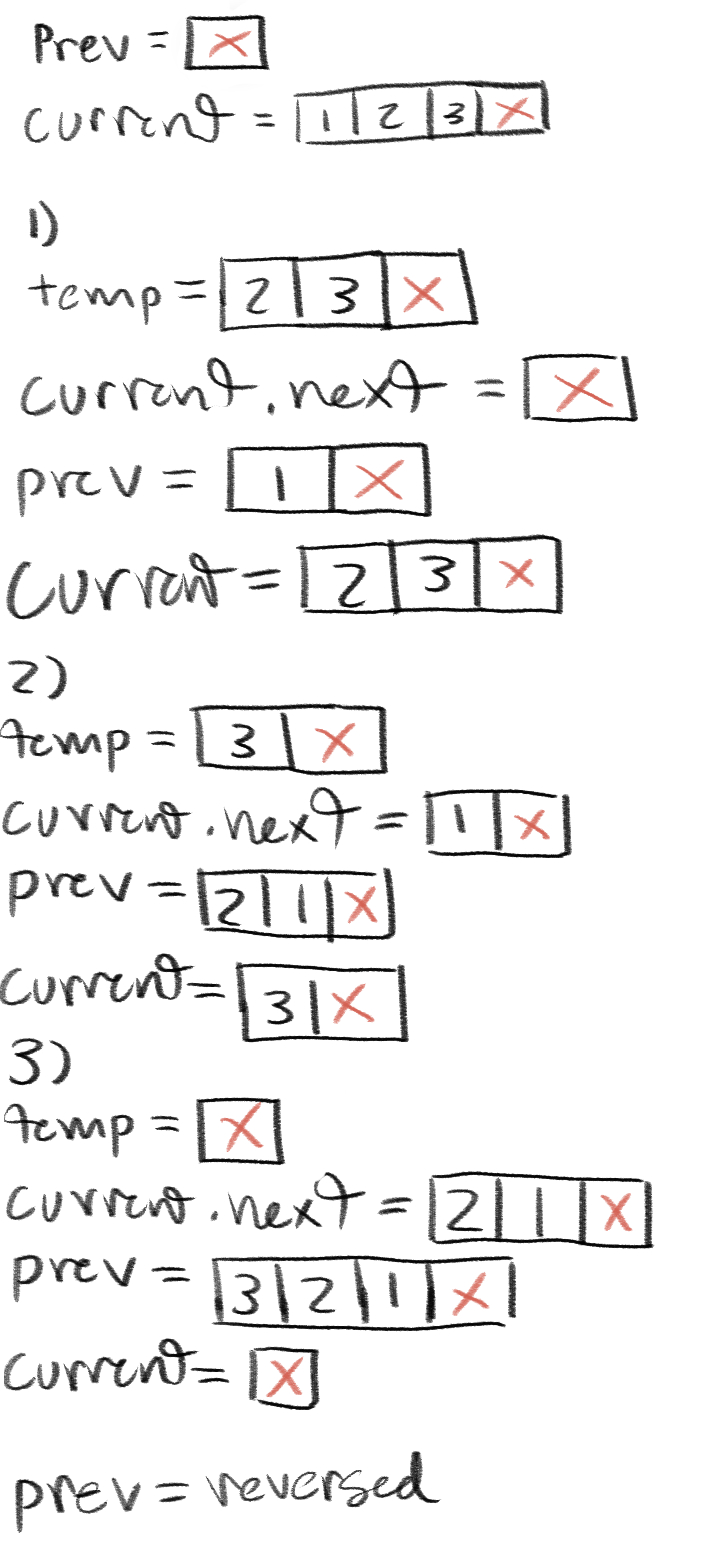 Prev = X
current = 1 2 3 X
1)
temp = 2 3 X
current.next = X
prev = 1 X
Current = 2 3 X
2)
temp = 3 X
current.next = 1 X
prev = 2 1 X
current = 3 X
3)
temp = X
current.next = 2 1 X
prev = 3 2 1 X
current = X
prev = reversed